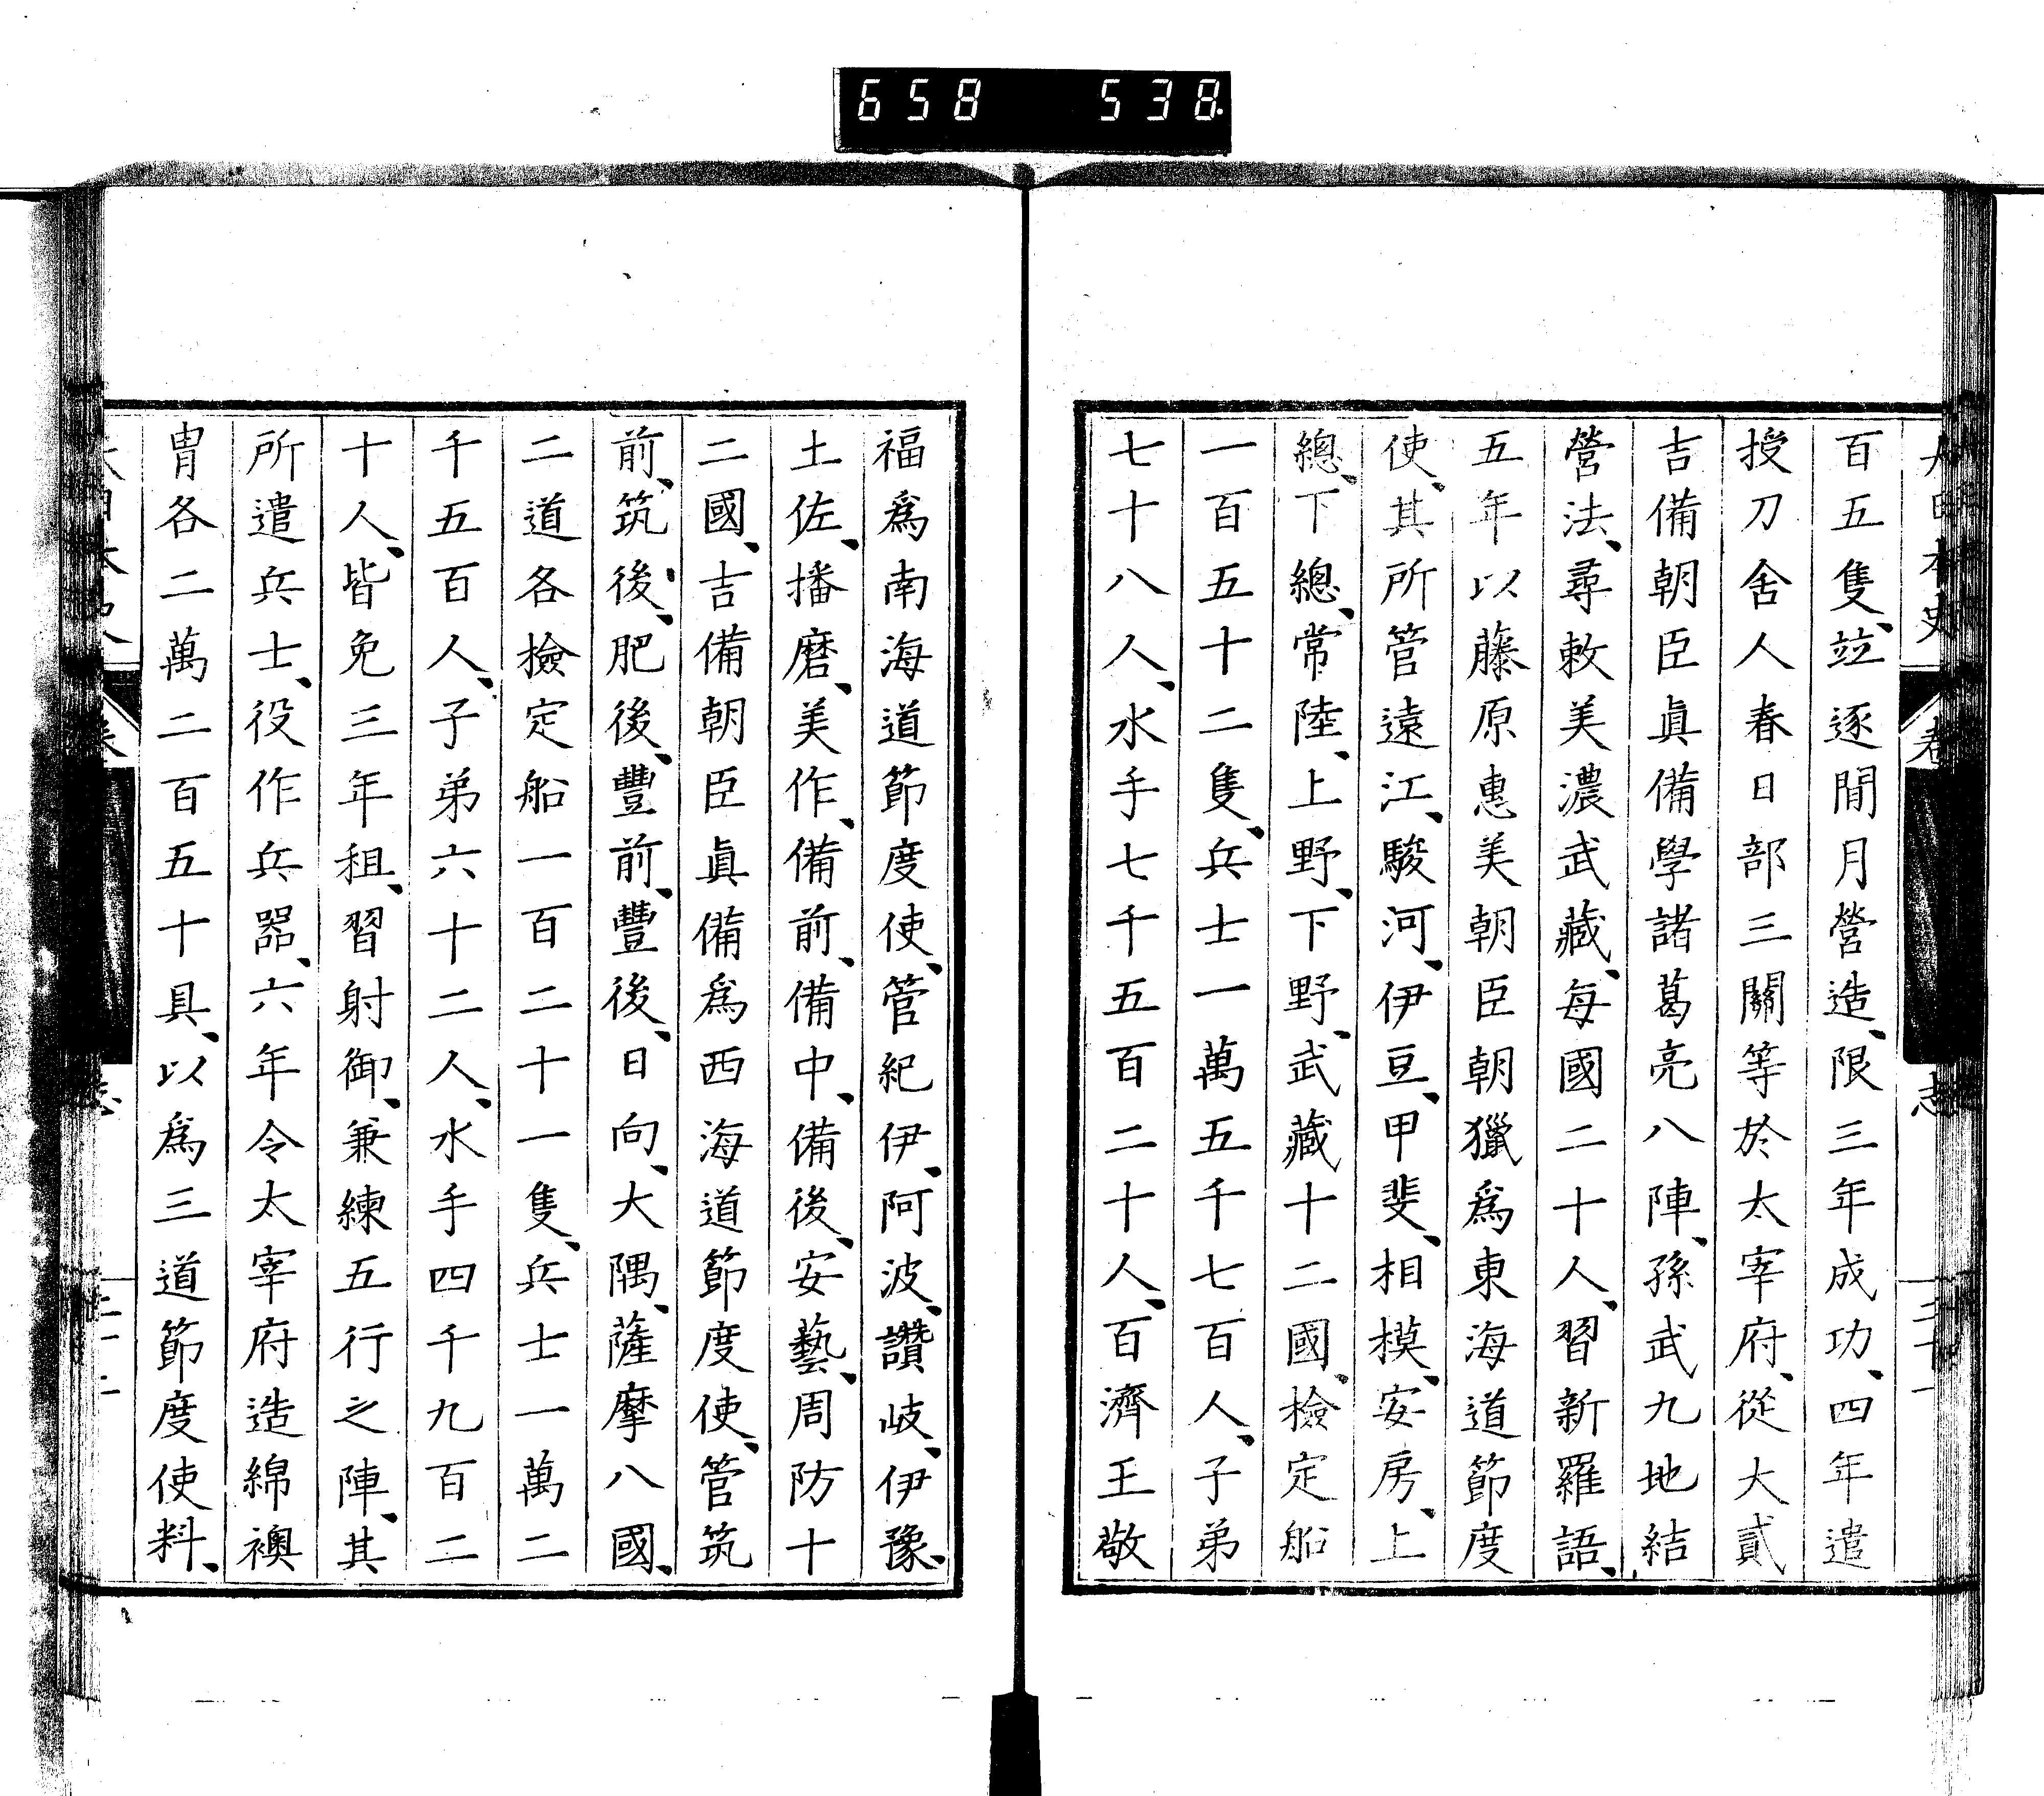 658 538
百五隻、竝逐閒月營造、限三年成功、四年遣
授刀舍人春日部三關等於太宰府、從大貳
吉備朝臣眞備學諸葛亮八陣、孫武九地結
營法、尋敕美濃武藏、每國二十人、習新羅語、
五年以藤原惠美朝臣朝獵爲東海道節度
使、其所管遠江、駿河、伊豆、甲斐、相模、安房、上
總、下總、常陸、上野、下野、武藏十二國、檢定船
一百五十二隻、兵士一萬五千七百人、子弟
七十八人、水手七千五百二十人、百濟王敬
福爲南海道節度使、管紀伊、阿波、讚岐、伊豫、
土佐、播磨、美作、備前、備中、備後、安藝、周防十
二國、吉備朝臣眞備爲西海道節度使、管筑
前、筑後、肥後、豐前、豐後、日向、大隅、薩摩八國、
二道各檢定船一百二十一隻、兵士一萬二
千五百人、子弟六十二人、水手四千九百二
十人、皆免三年租、習射御、兼練五行之陣、其
所遣兵士、役作兵器、六年令太宰府造綿襖
冑各二萬二百五十具、以爲三道節度使料、